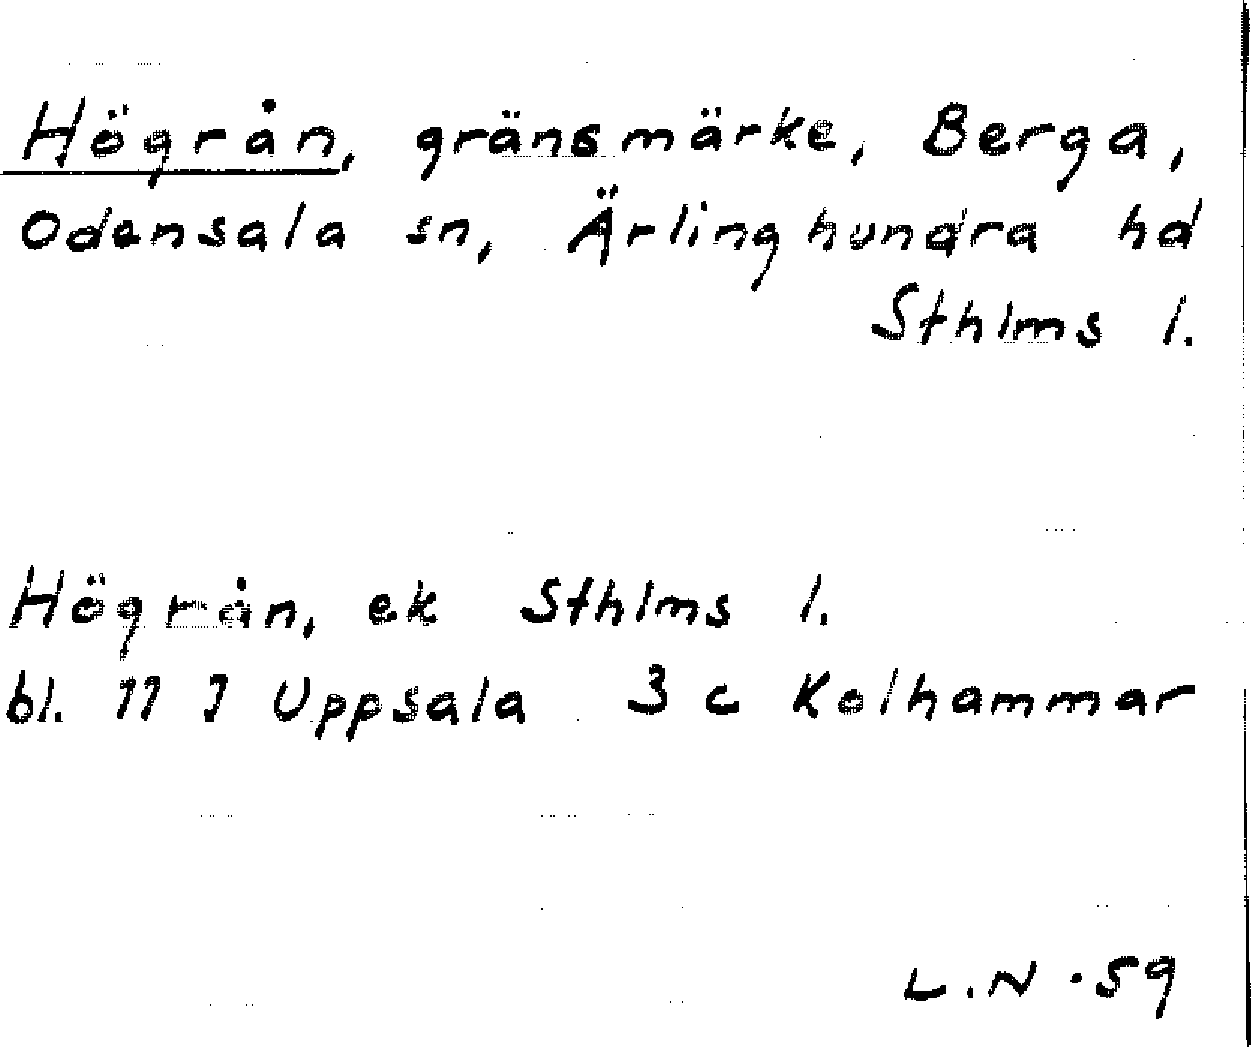 Högrån, gränsmärke, Berga,
Odensala sn, Ärlinghundra hd
Sthlms l.
Högrån, ek Sthlms l.
bl. 11 I Uppsala 3 c Kolhammar
L.N. 59